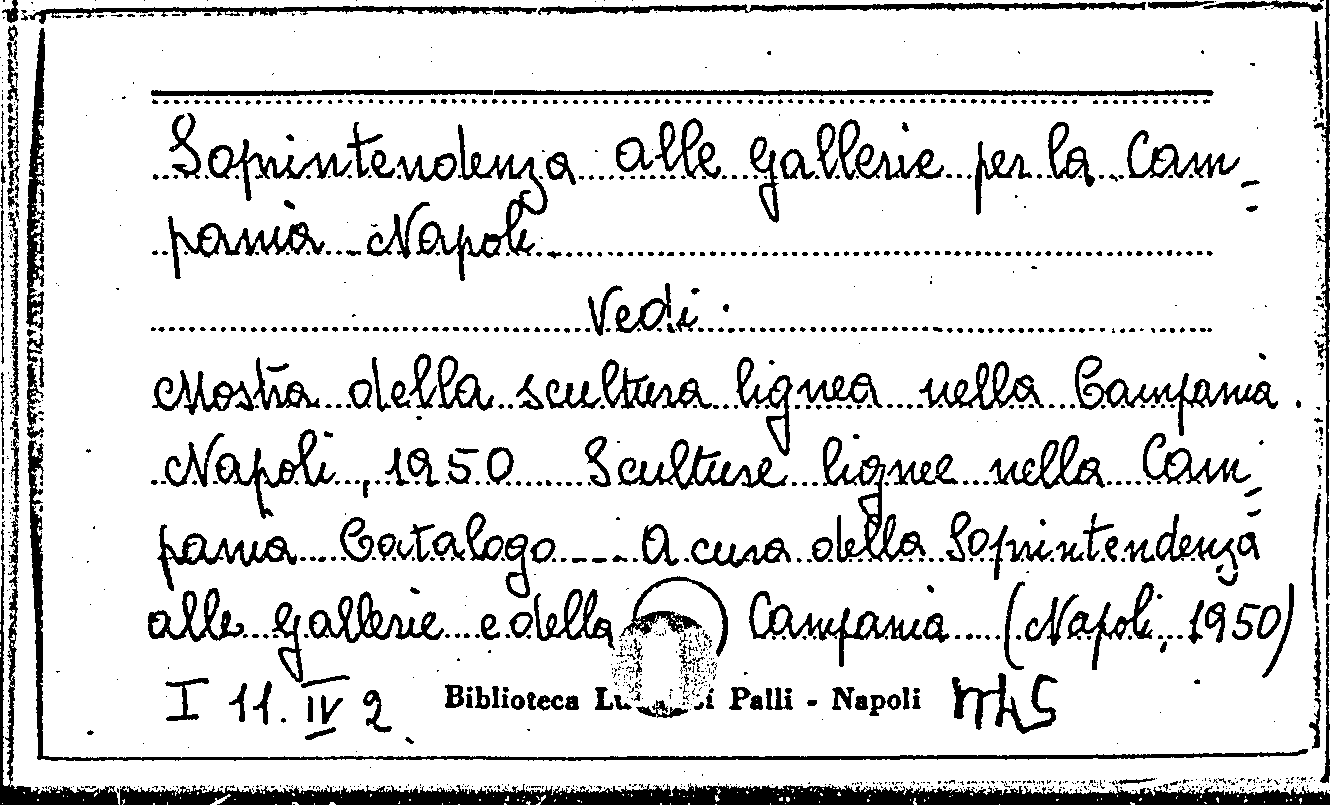 Soprintendenza alle gallerie per la Cam=
pania - Napoli
Vedi:
Mostra della scultura lignea nella Campania.
Napoli, 1950. Sculture lignee nella Cam=
pania Catalogo --- A cura della Soprintendenza
alle gallerie e della Campania (Napoli, 1950)
I 11. IV 2 Biblioteca Palli - Napoli